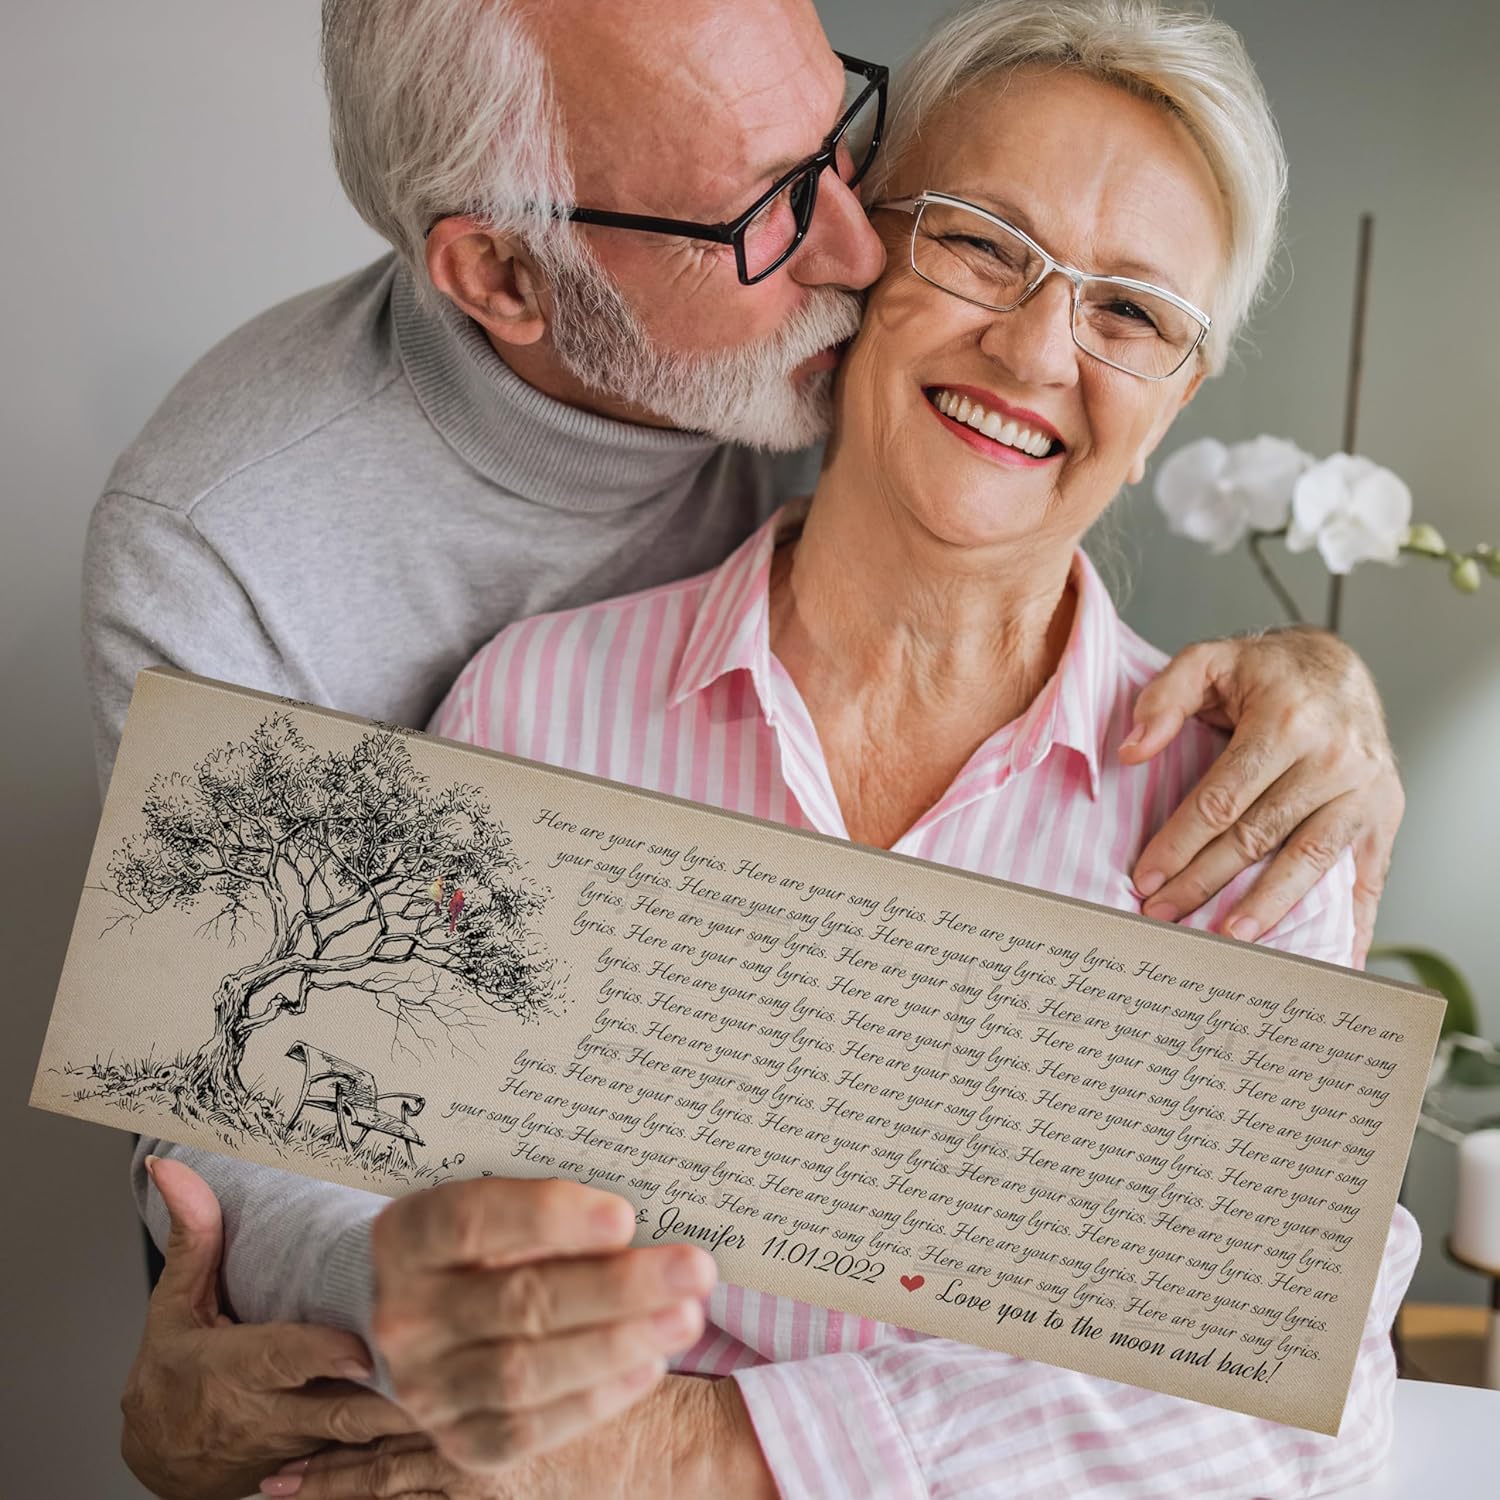 Here are your song lyrics. Here are your song lyrics. Here are your song lyrics. Here are your song lyrics. Here are
your song lyrics. Here are your song lyrics. Here are your song lyrics. Here are your song lyrics. Here are your song
lyrics. Here are your song lyrics. Here are your song lyrics. Here are your song lyrics. Here are your song
lyrics. Here are your song lyrics. Here are your song lyrics. Here are your song lyrics. Here are your song
lyrics. Here are your song lyrics. Here are your song lyrics. Here are your song lyrics. Here are your song
lyrics. Here are your song lyrics. Here are your song lyrics. Here are your song lyrics. Here are your song
lyrics. Here are your song lyrics. Here are your song lyrics. Here are your song lyrics. Here are your song
lyrics. Here are your song lyrics. Here are your song lyrics. Here are your song lyrics. Here are your song
lyrics. Here are your song lyrics. Here are your song lyrics. Here are your song lyrics. Here are your song lyrics.
Here are your song lyrics. Here are your song lyrics. Here are your song lyrics. Here are your song lyrics. Here are
your song lyrics. Here are your song lyrics. Here are your song lyrics. Here are your song lyrics. Here are your song lyrics.
Here are your song lyrics. Here are your song lyrics. Here are your song lyrics. Here are your song lyrics.
& Jennifer 11.01.2022 ❤ Love you to the moon and back!